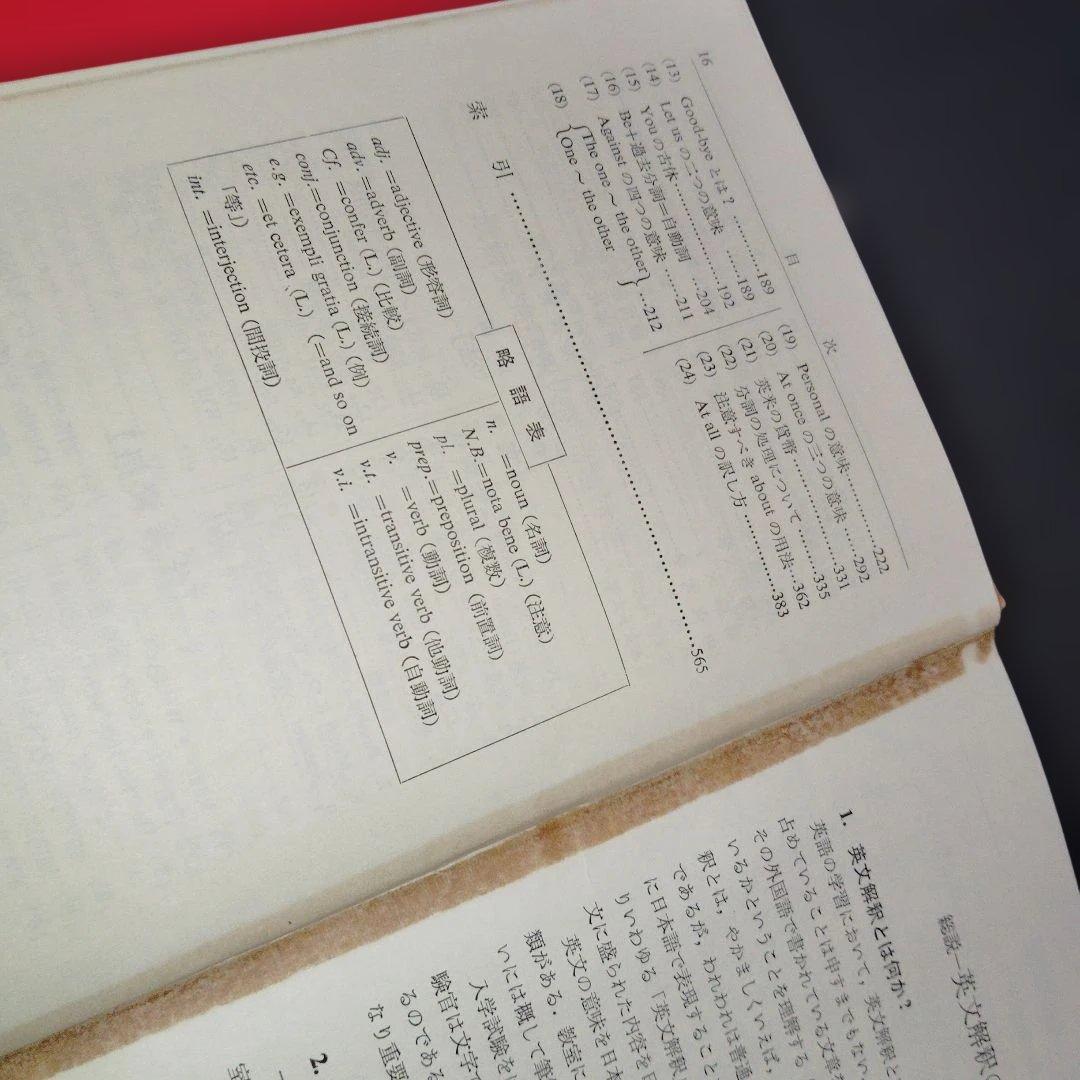 16
目 次
(13) Good-bye とは? ……………189
(14) Let us の二つの意味 ……189
(15) You の古体………………192
(16) Be+過去分詞=自動詞 ……204
(17) Against の四つの意味 ……211
(18) {The one ~ the other} …212
{One ~ the other
(19) Personal の意味……………222
(20) At once の三つの意味 ……292
(21) 英米の貨幣………………331
(22) 分詞の処理について………335
(23) 注意すべき about の用法…362
(24) At all の訳し方 ……………383
索 引 ……………………………………565
略 語 表
adj. =adjective (形容詞)
adv. =adverb (副詞)
Cf. =confer (L.) (比較)
conj.=conjunction (接続詞)
e.g. =exempli gratia (L.) (例)
etc. =et cetera (L.) (=and so on
「等」)
int. =interjection (間投詞)
n. =noun (名詞)
N.B.=nota bene (L.) (注意)
pl. =plural (複数)
prep.=preposition (前置詞)
v. =verb (動詞)
v.t. =transitive verb (他動詞)
v.i. =intransitive verb (自動詞)
総説—英文解釈(
1. 英文解釈とは何か?
英語の学習において, 英文解釈と
占めていることは申すまでもない
その外国語で書かれている文章が
いるかということを理解する
釈とは, やかましくいえば,
であるが, われわれは普通
に日本語で表現すること
りいわゆる「英文解釈」
文に盛られた内容を日
英文の意味を日本
類がある. 教室に
いには概して筆
入学試験を
験官は文字で
るのである
なり重要
2.